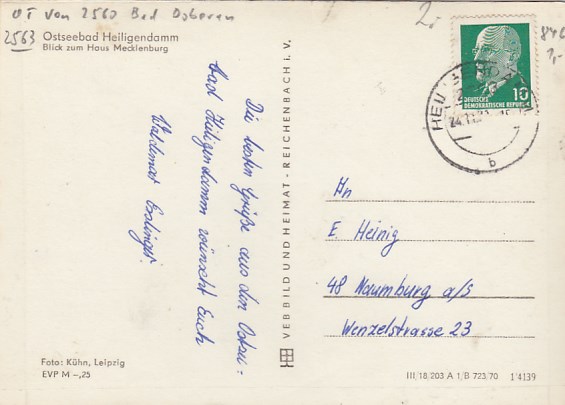 OT von 2560 Bad Doberan
2563
Ostseebad Heiligendamm
Blick zum Haus Mecklenburg
2,-
1,-
DEUTSCHE
DEMOKRATISCHE REPUBLIK
10
b
Die besten Grüße aus dem Ostsee-
bad Heiligendamm wünscht Euch
Waldemar
VEB BILD UND HEIMAT · REICHENBACH i. V.
An
E. Heinig
48 Naumburg a/S
Wenzelstrasse 23
Foto: Kühn, Leipzig
EVP M –,25
III/18/203 A 1/B 723/70
1/4139